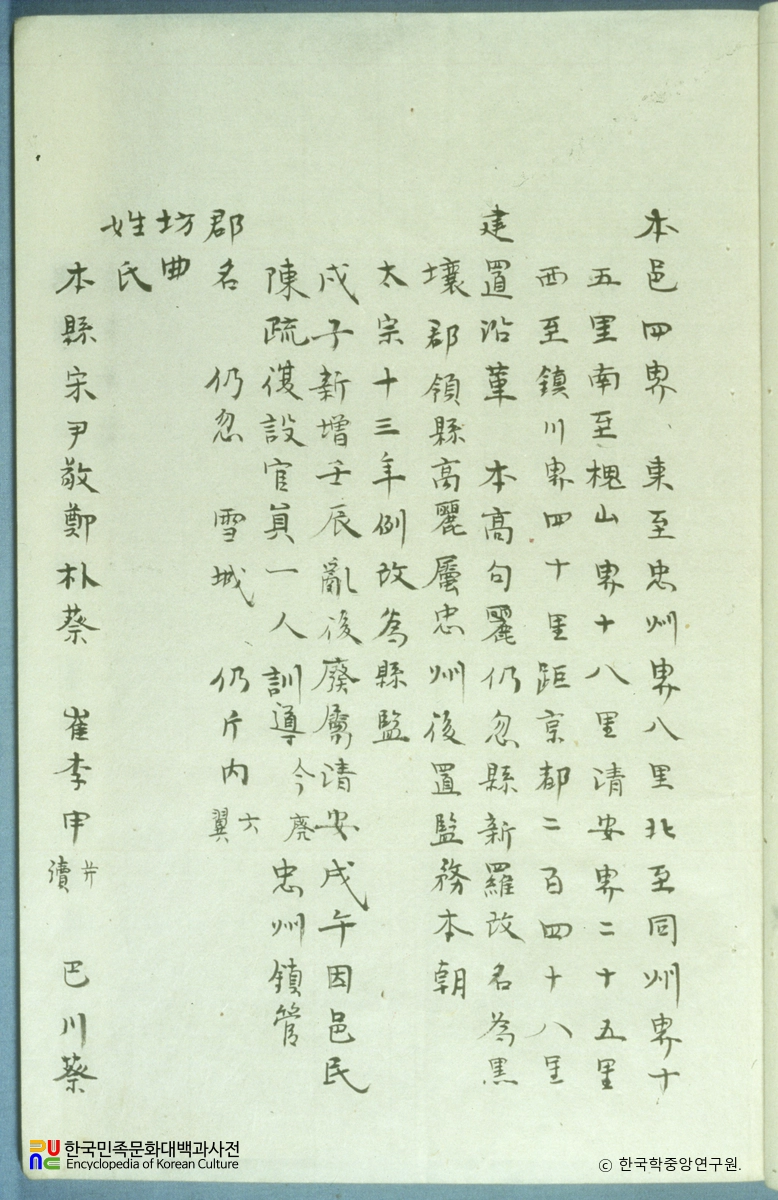 本邑四界 東至忠州界八里北至同州界十
五里南至槐山界十八里淸安界二十五里
西至鎭川界四十里距京都二百四十八里
建置沿革 本高句麗仍忽縣新羅改名爲黑
壤郡領縣高麗屬忠州後置監務本朝
太宗十三年例改爲縣監
戊子新增壬辰亂後廢屬淸安戊午因邑民
陳疏復設官員一人訓導今廃忠州鎭管
郡名 仍忽 雪城 仍斤內六翼
坊曲
姓氏
本縣宋尹敬鄭朴蔡 崔李申并續 巴川蔡
한국민족문화대백과사전
Encyclopedia of Korean Culture
ⓒ 한국학중앙연구원.